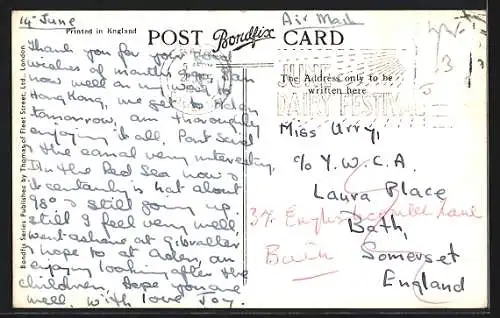 14th June
Air Mail
Printed in England
POST Bondfix CARD
Thank you for your kind
wishes of months ago, I am
now well on my way to
Hong Kong, we get to Aden
tomorrow, am thoroughly
enjoying it all, Port Said
& the canal very interesting,
I'm in the Red Sea now &
it certainly is hot about
98° & still going up.
Still I feel very well,
went ashore at Gibralter
& hope to at Aden, am
enjoying looking after the
children, Hope you are
well, with love Joy.
Bondfix Series Published by Thomas of Fleet Street, Ltd., London.
JUNE
DAIRY FESTIVAL
The Address only to be
written here
Miss Urry,
c/o Y.W.C.A.
Laura Place
Bath,
Somerset
England
37 Englishcombe Lane
Bath